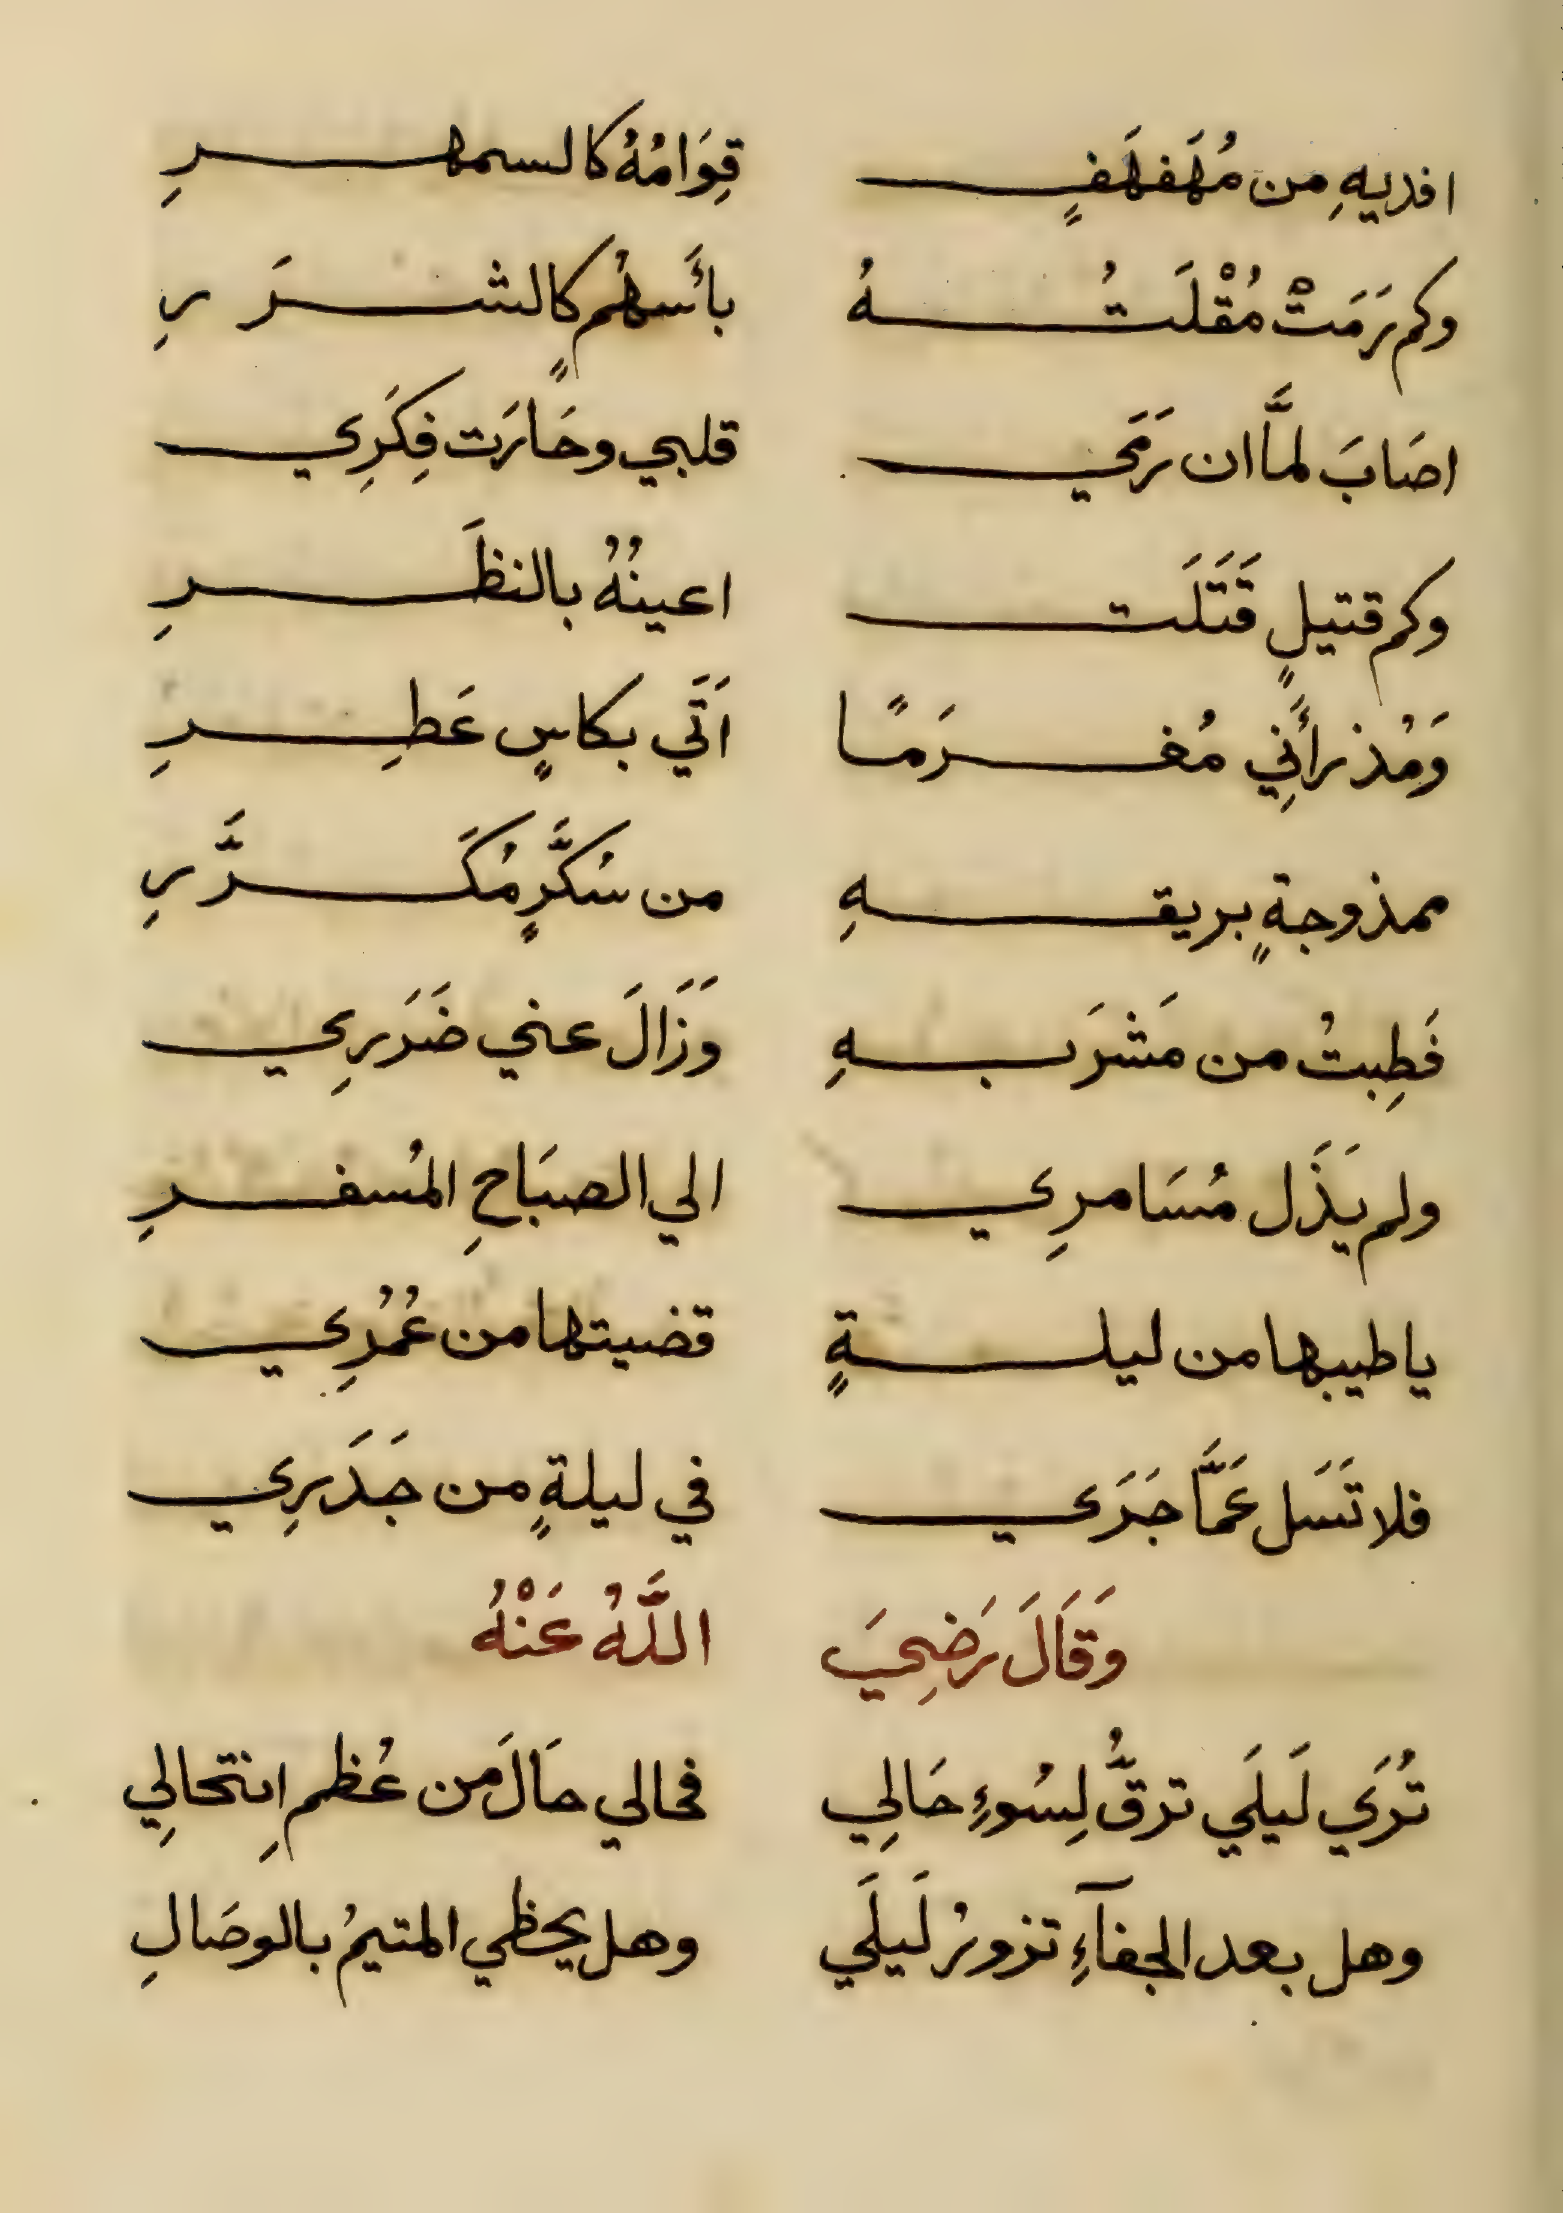 افديهِ من مُهَفهَفٍ قِوَامُهُ كالسمهرِ
وكم رَمَتْ مُقْلَتُهُ بأَسهُمٍ كالشرَرِ
اصَابَ لمَّا ان رَمَي قلبي وحَارَت فِكَرِي
وكم قتيلٍ قَتَلَت اعينُهُ بالنظَرِ
وَمُذ رأَنِي مُغرَمًا اَتَي بكاسٍ عَطِرِ
ممذوجةٍ بريقهِ من سُكَّرٍ مُكَرَّرِ
فَطِبتُ من مَشرَبهِ وَزَالَ عني ضَرَرِي
ولم يَذَل مُسَامرِي الي الصبَاحِ المُسفرِ
ياطيبها من ليلةٍ قضيتها من عُمُرِي
فلا تَسَل عَمَّا جَرَي في ليلةٍ من جَدَرِي
وَقَالَ رَضِيَ اللَّهُ عَنْهُ
تُرَي لَيلَي ترقُّ لِسُوءِ حَالِي فحالي حَالَ من عُظم اِنتحالِي
وهل بعد الجفآءِ تزورُ لَيلَي وهل يحظي المتيمُ بالوصَالِ